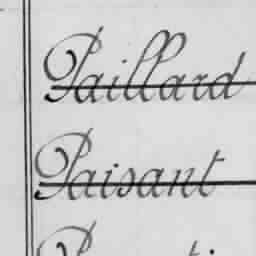 Paillard
Paisant